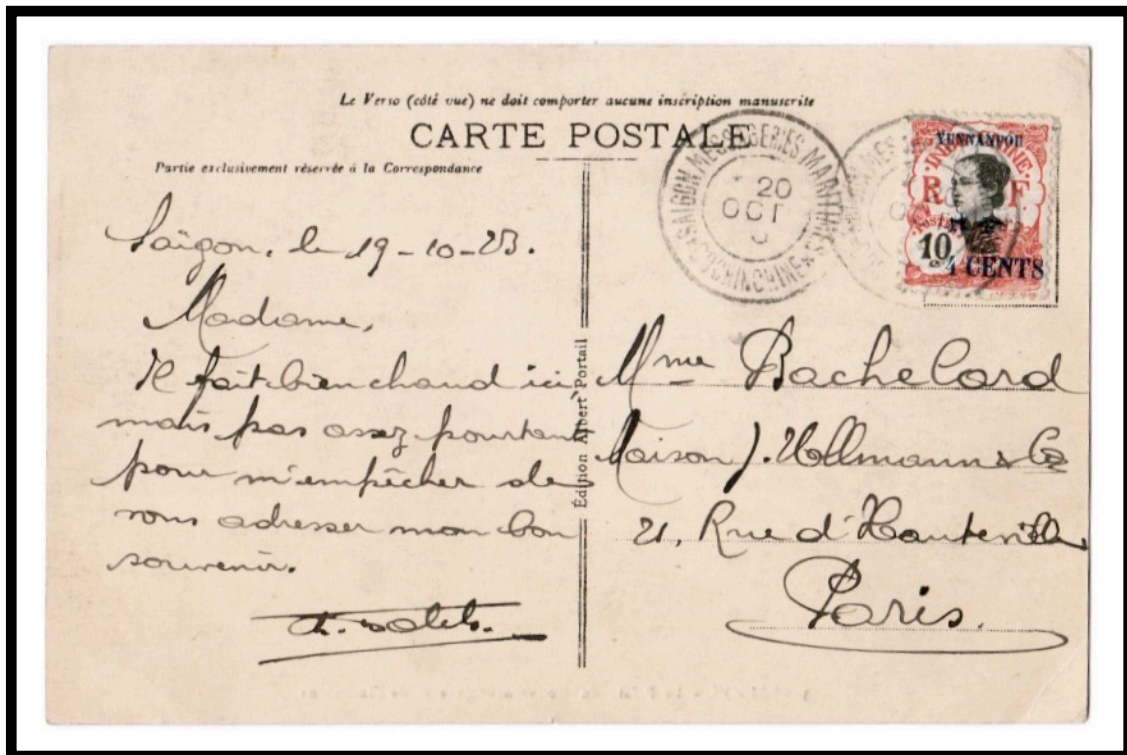 Le Verso (côté vue) ne doit comporter aucune inscription manuscrite
CARTE POSTALE
Partie exclusivement réservée à la Correspondance
Saïgon, le 19-10-23.
Madame,
Il fait bien chaud ici
mais pas assez pourtant
pour m'empêcher de
vous adresser mon bon
souvenir.
Édition Albert Portail
SAIGON MESSAGERIES MARITIMES
COCHINCHINE
20
OCT
YUNNANFOU
INDOCHINE
R F
POSTES
10 c
4 CENTS
Mme Bachelard
Maison J. Hollmann & Co
21, Rue d'Hauteville
Paris.